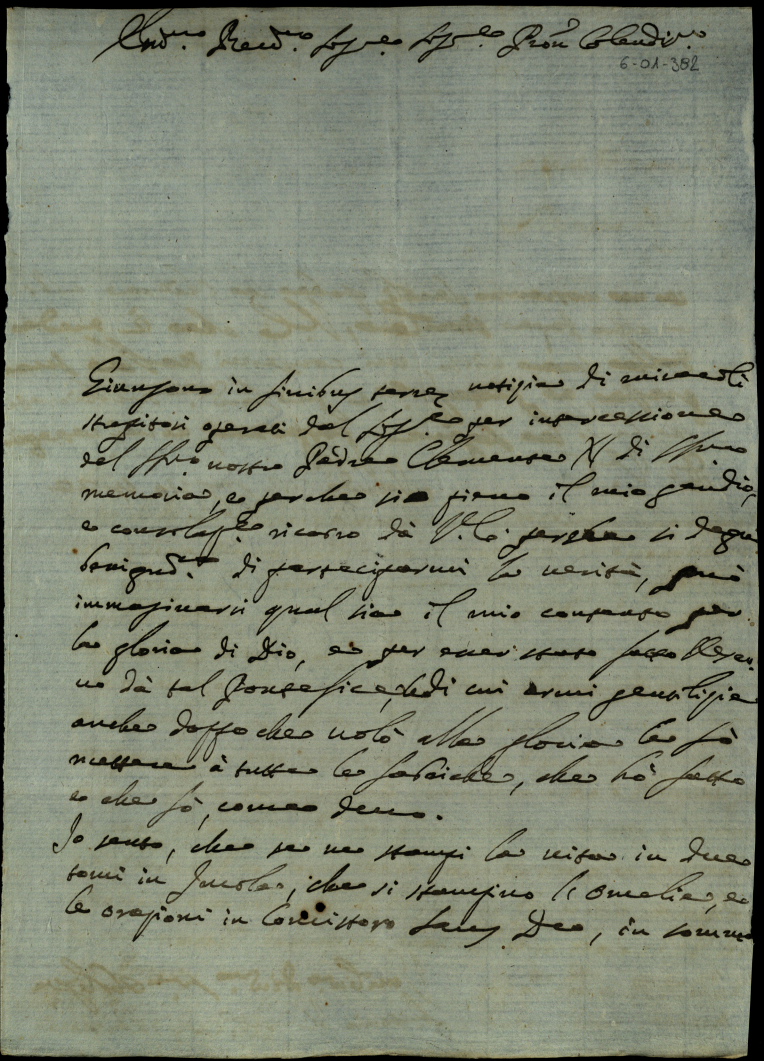 Emd.mo Revd.mo Sig.re Sig.re Pron Colendi.mo
6-01-382
Giungono in finibus terrę notizie di miracoli
strepitosi operati dal Sig.re per intercessione
del SSmo nostro Padre Clemente XI di
memoria, e perche sia pieno il mio gaudio,
e consolaz.e ricorro dà V. perche si degni
benignd.te di parteciparmi la verità, può
immaginarsi qual sia il mio contento per
la gloria di Dio, e per esser stato fatto Vesco-
vo dà tal Pontefice, di cui armi gentilizie
anche doppo che volò alla gloria le fò
mettere à tutte le fabriche, che hò fatto
e che fò, come devo.
Io sento, che se ne stampi la vita in due
tomi in Imola, che si stampino le omelie, e
le orazioni in Concistoro Laus Deo, in somma